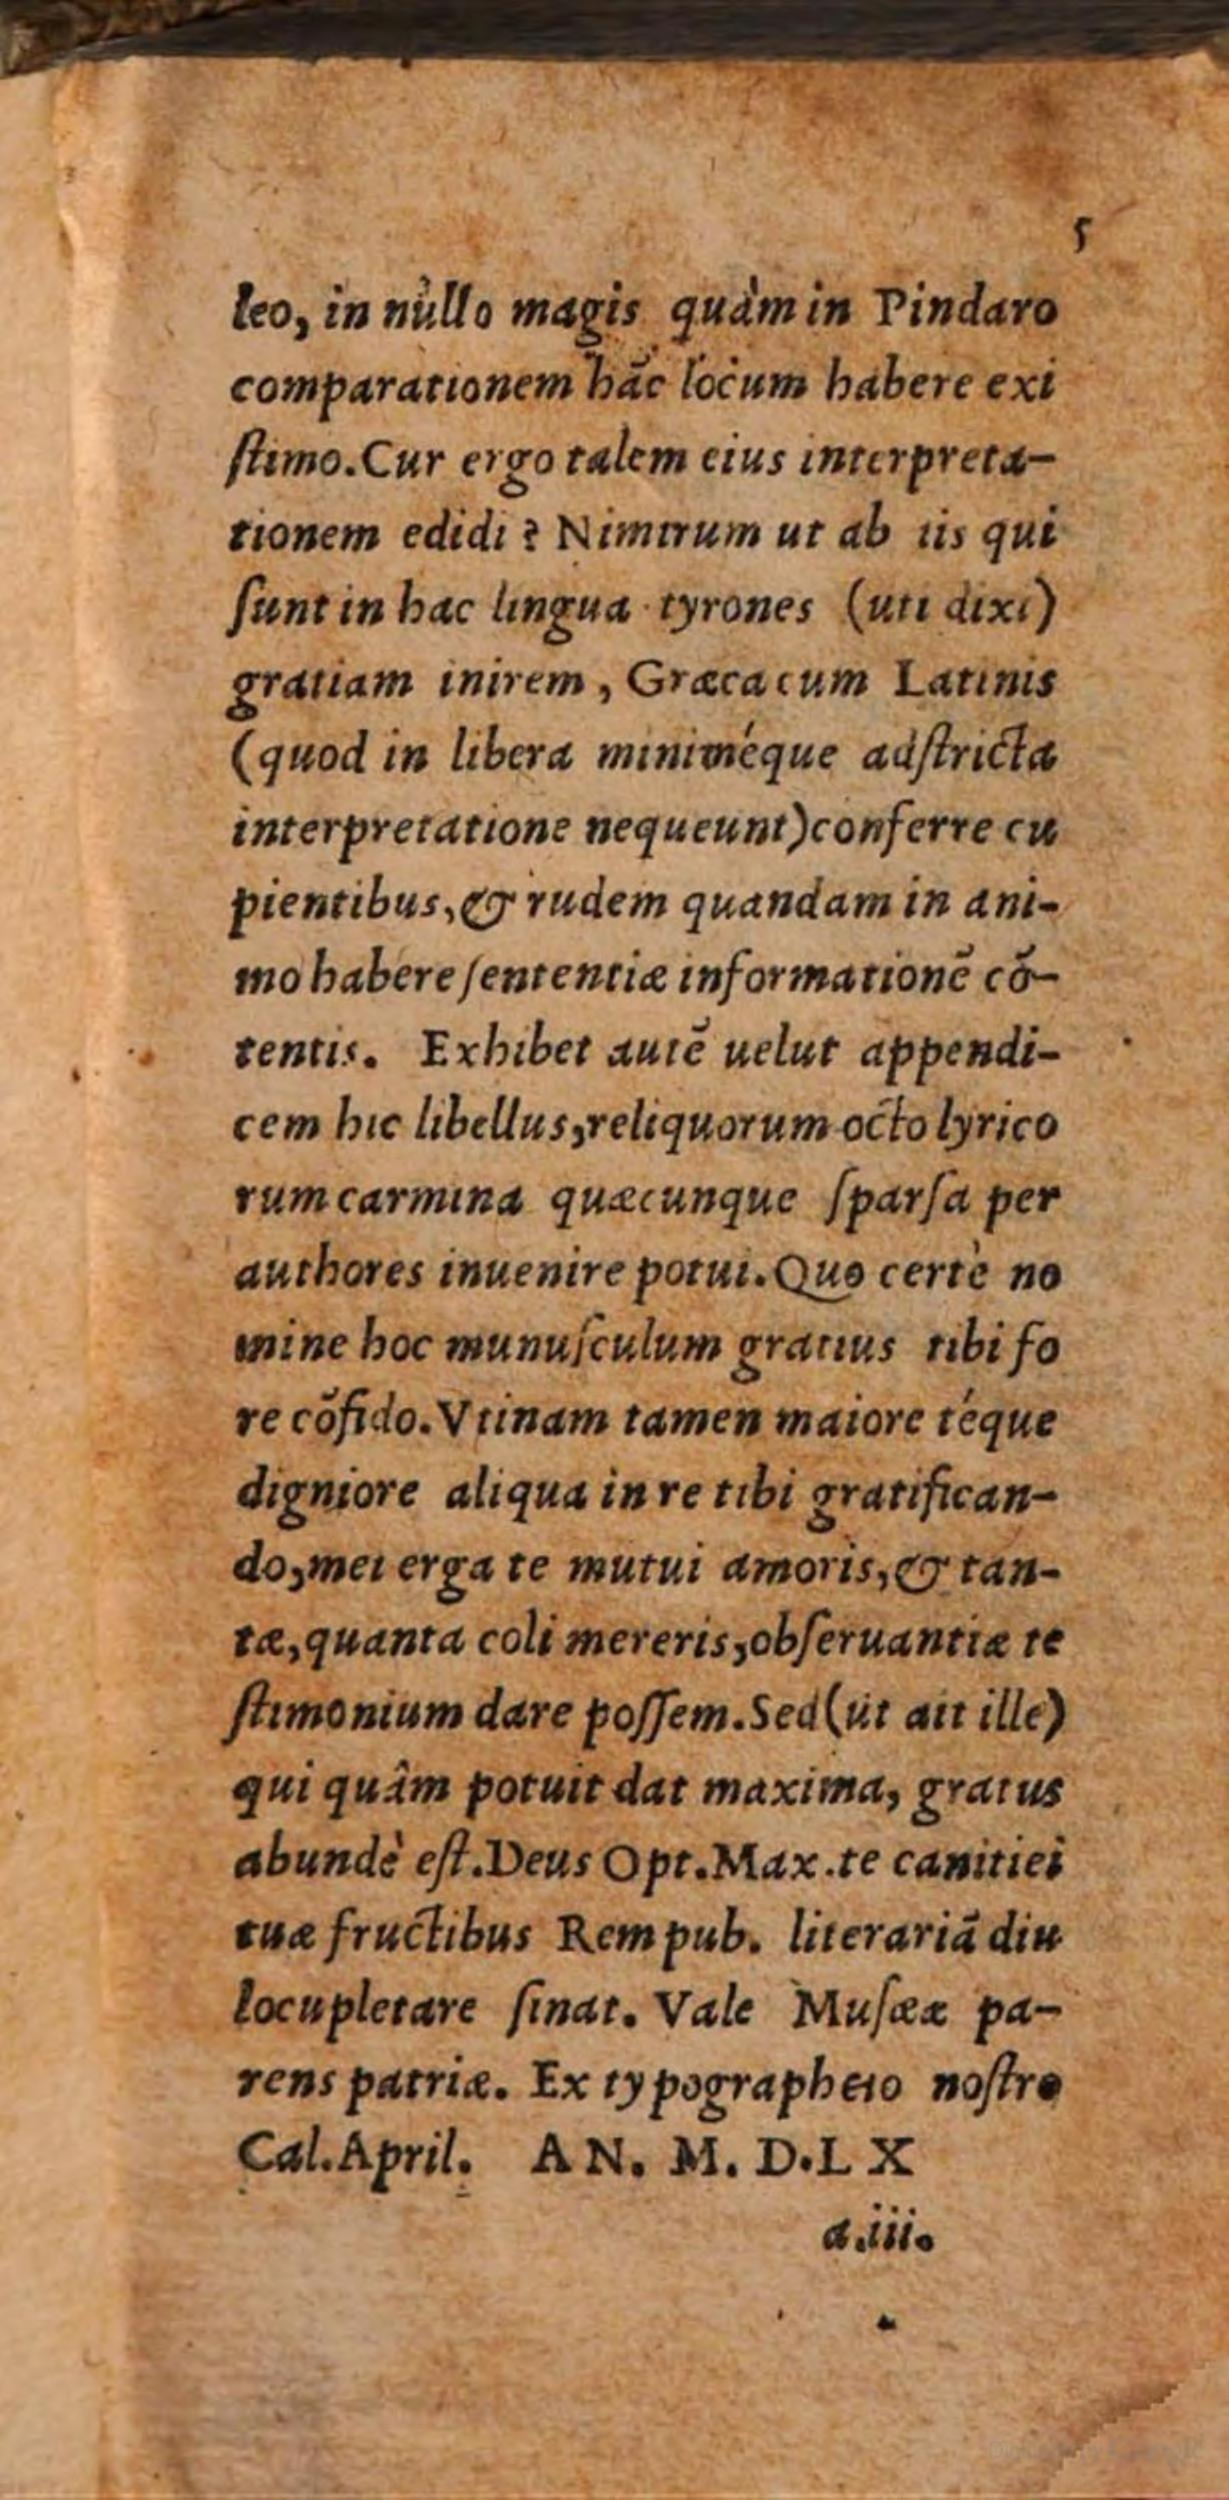 5
leo, in nullo magis quàm in Pindaro
comparationem hāc locum habere exi
ſtimo. Cur ergo talem eius interpreta-
tionem edidi? Nimirum ut ab iis qui
ſunt in hac lingua tyrones (uti dixi)
gratiam inirem, Græca cum Latinis
(quod in libera miniméque adſtricta
interpretatione nequeunt) conferre cu
pientibus, & rudem quandam in ani-
mo habere ſententiæ informationē cō-
tentis. Exhibet autē uelut appendi-
cem hic libellus, reliquorum octo lyrico
rum carmina quæcunque ſparſa per
authores inuenire potui. Quo certè no
mine hoc munuſculum gratius tibi fo
re cōfido. Vtinam tamen maiore téque
digniore aliqua in re tibi gratifican-
do, mei erga te mutui amoris, & tan-
tæ, quanta coli mereris, obſeruantiæ te
ſtimonium dare poſſem. Sed (ut ait ille)
qui quâm potuit dat maxima, gratus
abundè eſt. Deus Opt. Max. te canitiei
tuæ fructibus Rempub. literariā diu
locupletare ſinat. Vale Muſææ pa-
rens patriæ. Ex typographeio noſtro
Cal. April. AN. M. D. LX
a.iii.